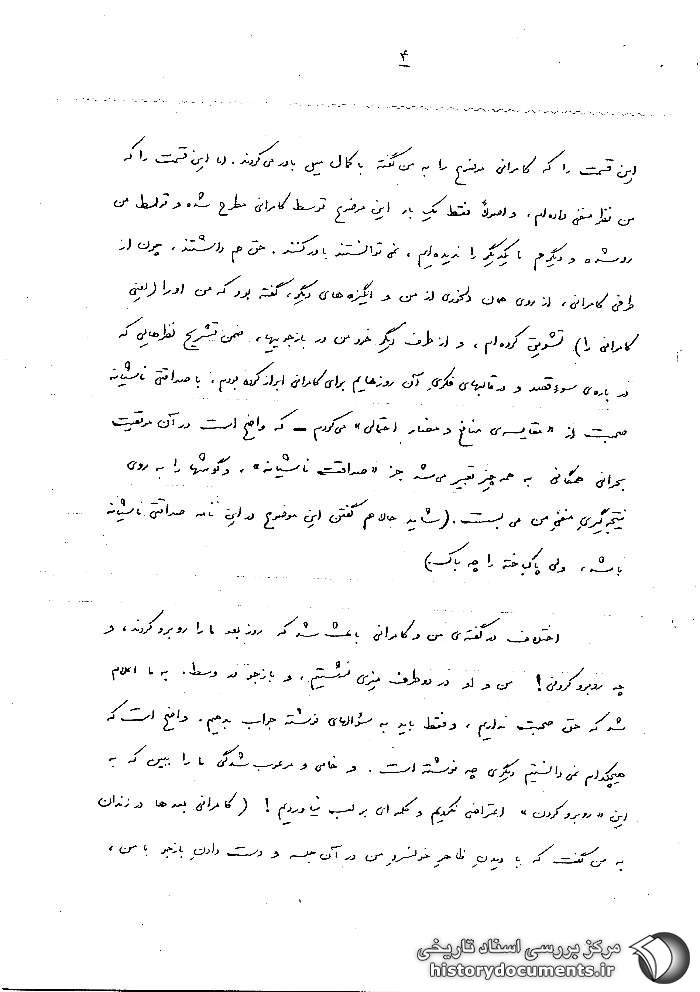 ۴
این قسمت را که کامرانی موضوع را به من گفته با کمال میل باور می‌کردند. اما این قسمت را که
من نظر منفی داده‌ام، و اصولاً فقط یک بار این موضوع توسط کامرانی مطرح شده و توسط من
رد شده و دیگر هم ما یکدیگر را ندیده‌ایم، نمی توانستند باور کنند. حق هم داشتند، چون از
طرفی کامرانی، از روی همان دلخوری از من و انگیزه های دیگر، گفته بود که من او را (یعنی
کامرانی را) تشویق کرده‌ام، و از طرف دیگر خود من در بازجوییها، ضمن تشریح نظرهایی که
در باره‌ی سوءقصد و در قالبهای فکری آن روزهایم برای کامرانی ابراز کرده بودم، با صداقتی ناشیانه
صحبت از «مقایسه‌ی منافع و مضار احتمالی» می‌کردم – که واضح است در آن موقعیت
بحرانی همگانی به همه چیز تعبیر می‌شد جز «صداقت ناشیانه»، و گوشها را به روی
نتیجه‌گیری منفی من می بست. (شاید حالا هم گفتن این موضوع در این نامه صداقتی ناشیانه
باشد، ولی پاکباخته را چه باک.)
اختلاف در گفته‌ی من و کامرانی باعث شد که روز بعد ما را روبرو کردند، و
چه روبرو کردنی! من و او در دو طرف میزی نشستیم، و بازجو در وسط. به ما اعلام
شد که حق صحبت نداریم، و فقط باید به سؤالهای نوشته جواب بدهیم. واضح است که
هیچکدام نمی دانستیم دیگری چه نوشته است. و خامی و مرعوب شدگی ما را ببین که به
این «روبرو کردن» اعتراضی نکردیم و کلمه ای بر لب نیاوردیم! (کامرانی بعدها در زندان
به من گفت که با دیدن ظاهر خونسرد من در آن جلسه و دست دادن بازجو با من،
مرکز بررسی اسناد تاریخی
historydocuments.ir